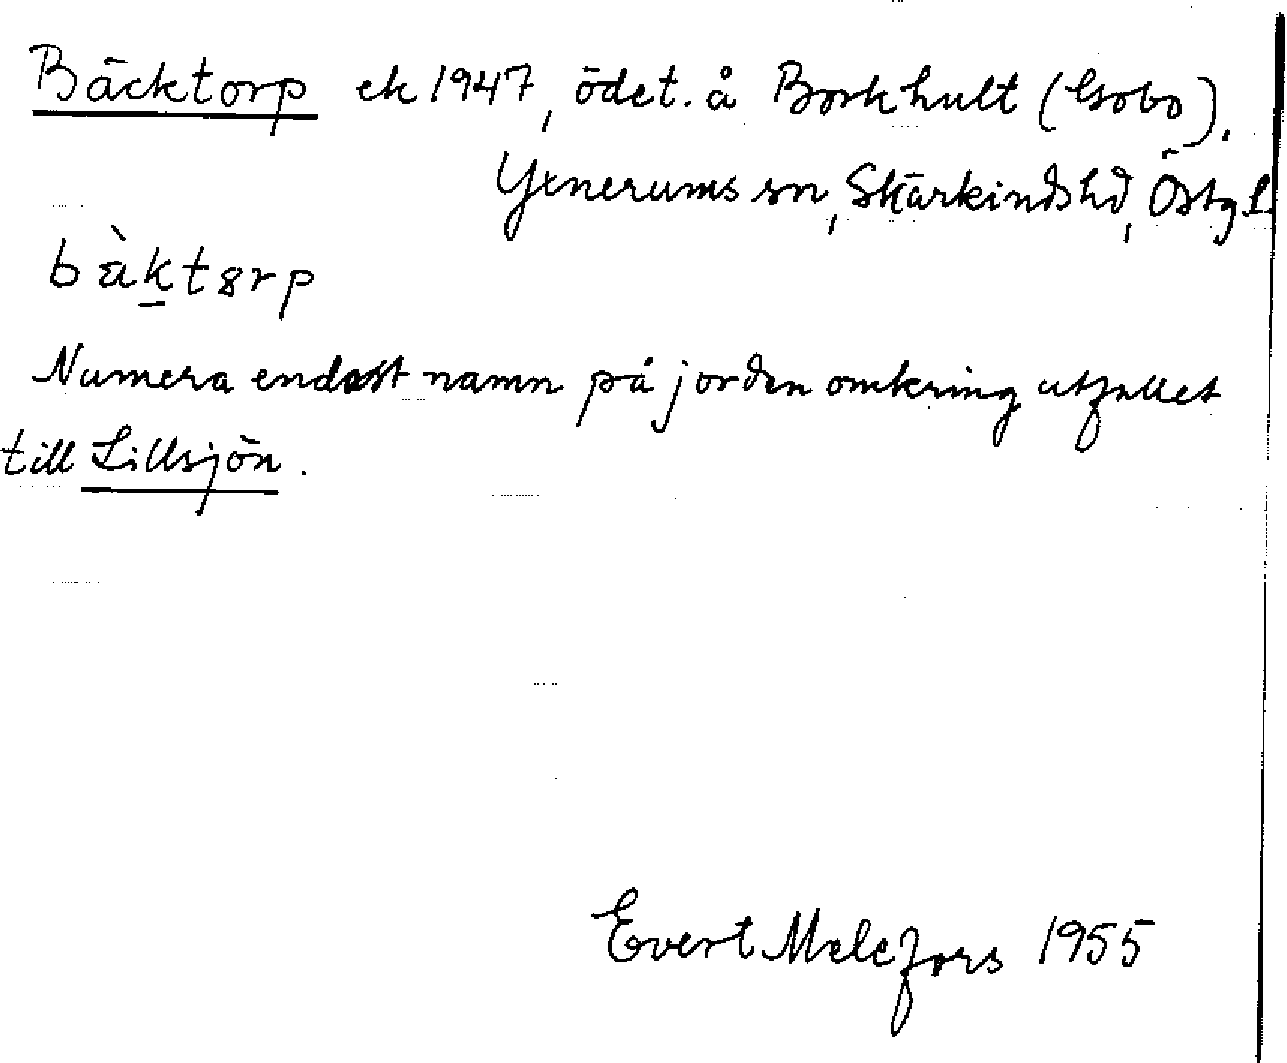 Bäcktorp ek 1947, ödet. å Borkhult (Gobo).
Yxnerums sn, Skärkinds hd, Östg L.
bàktɛrp
Numera endast namn på jorden omkring utfallet
till Lillsjön.
Evert Melefors 1955